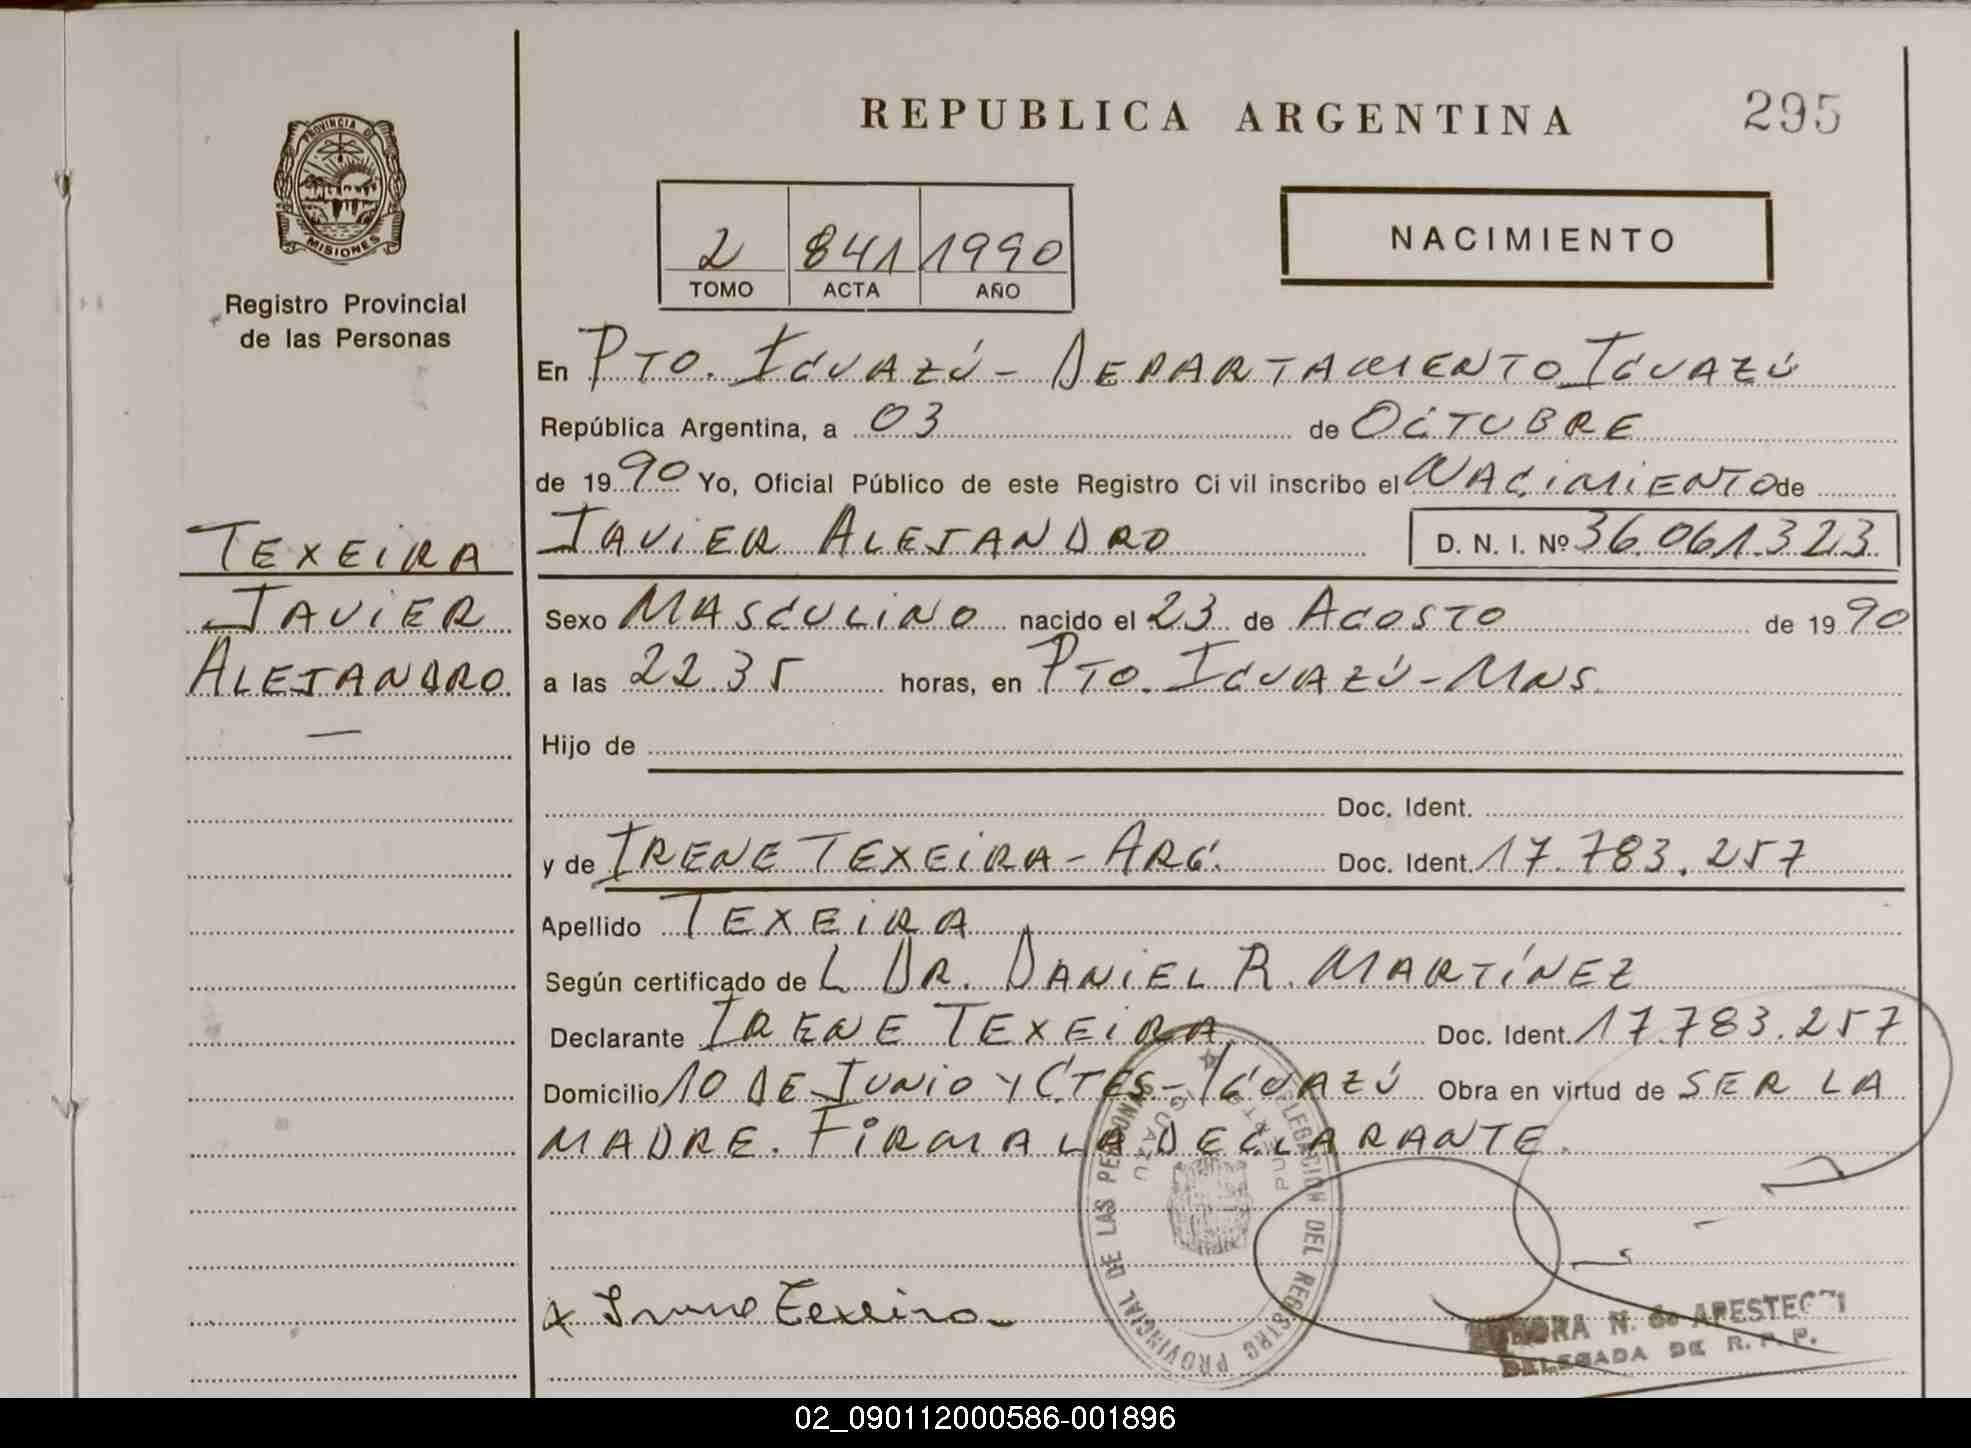 REPUBLICA ARGENTINA
295
PROVINCIA DE
MISIONES
Registro Provincial
de las Personas
2 841 1990
TOMO ACTA AÑO
NACIMIENTO
En PTO. IGUAZÚ - DEPARTAMENTO IGUAZÚ
República Argentina, a 03 de OCTUBRE
de 1990 Yo, Oficial Público de este Registro Ci vil inscribo el NACIMIENTO de
JAVIER ALEJANDRO D. N. I. Nº 36.061.323
TEXEIRA
JAVIER
ALEJANDRO
—
Sexo MASCULINO nacido el 23 de AGOSTO de 1990
a las 22.35 horas, en PTO. IGUAZÚ - MNS.
Hijo de
Doc. Ident.
y de IRENE TEXEIRA - ARG. Doc. Ident. 17.783.257
Apellido TEXEIRA
Según certificado de L DR. DANIEL R. MARTÍNEZ
Declarante IRENE TEXEIRA Doc. Ident. 17.783.257
Domicilio 10 DE JUNIO Y CTES - IGUAZÚ Obra en virtud de SER LA
MADRE. FIRMA LA DECLARANTE.
DELEGACION DEL REGISTRO PROVINCIAL DE LAS PERSONAS
PUERTO IGUAZU
x Irene Texeira
N. de ARESTEGUI
DELEGADA DE R. P. P.
02_090112000586-001896